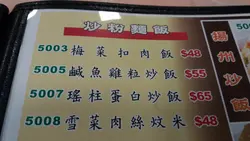 炒粉麵飯
5003 梅菜扣肉飯 $48
5005 鹹魚雞粒炒飯 $55
5007 瑤柱蛋白炒飯 $65
5008 雪菜肉絲炆米 $48
揚州炒飯